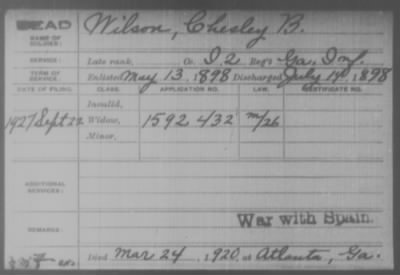 DEAD
Wilson, Chesley B.
NAME OF SOLDIER:
SERVICE: Late rank, Co. I. 2 Reg't Ga. Inf.
TERM OF SERVICE: Enlisted May 13, 1898 Discharged July 19, 1898
DATE OF FILING. CLASS. APPLICATION NO. LAW. CERTIFICATE NO.
Invalid,
1927 Sept 22 Widow, 1592 432 m/26
Minor,
ADDITIONAL SERVICES:
War with Spain.
REMARKS:
Died Mar 24, 1920, at Atlanta, Ga.